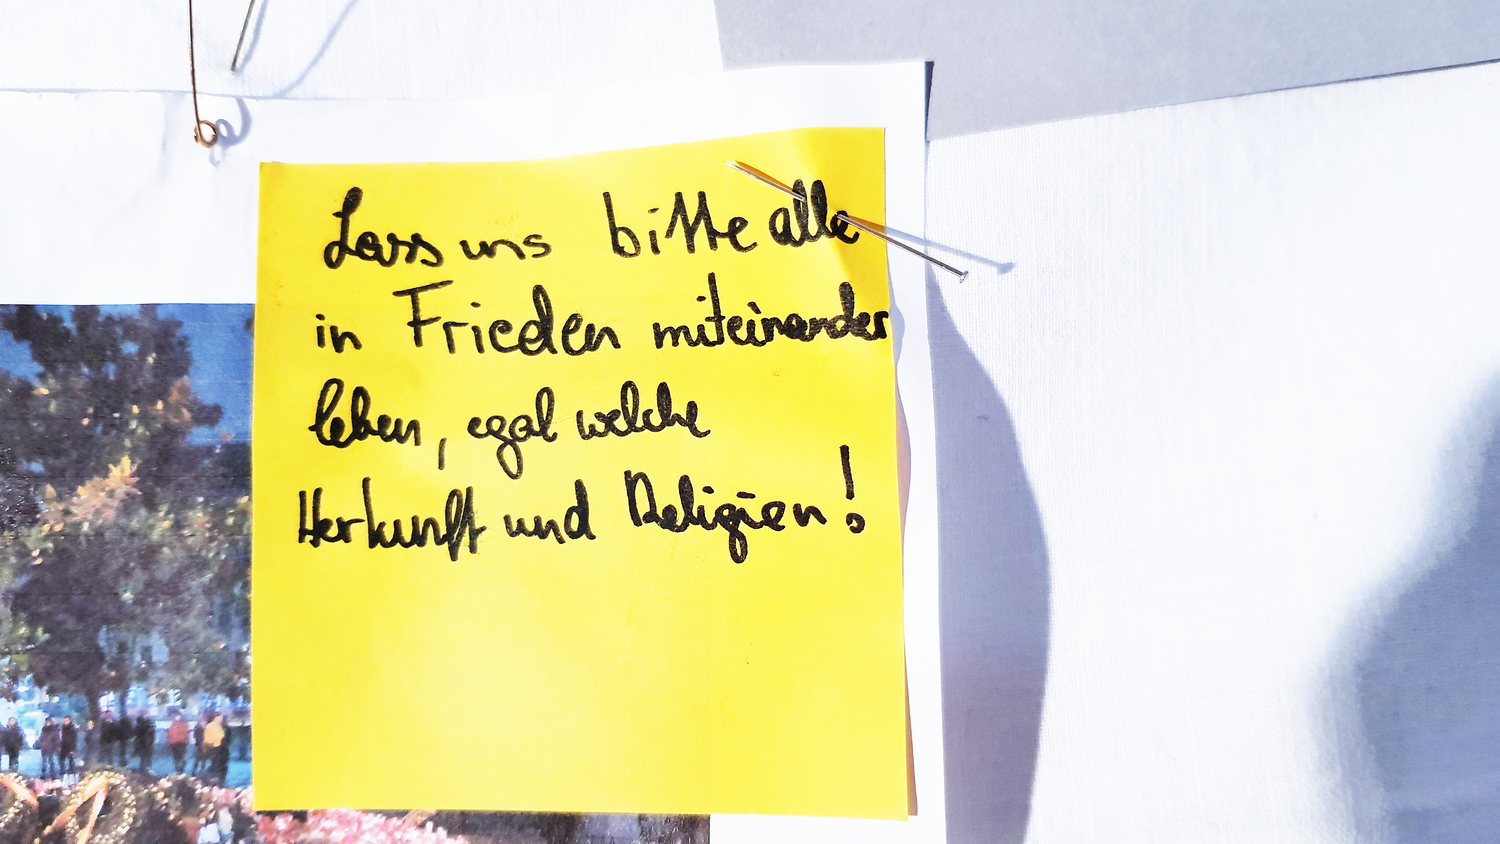 Lass uns bitte alle
in Frieden miteinander
leben, egal welche
Herkunft und Religion!